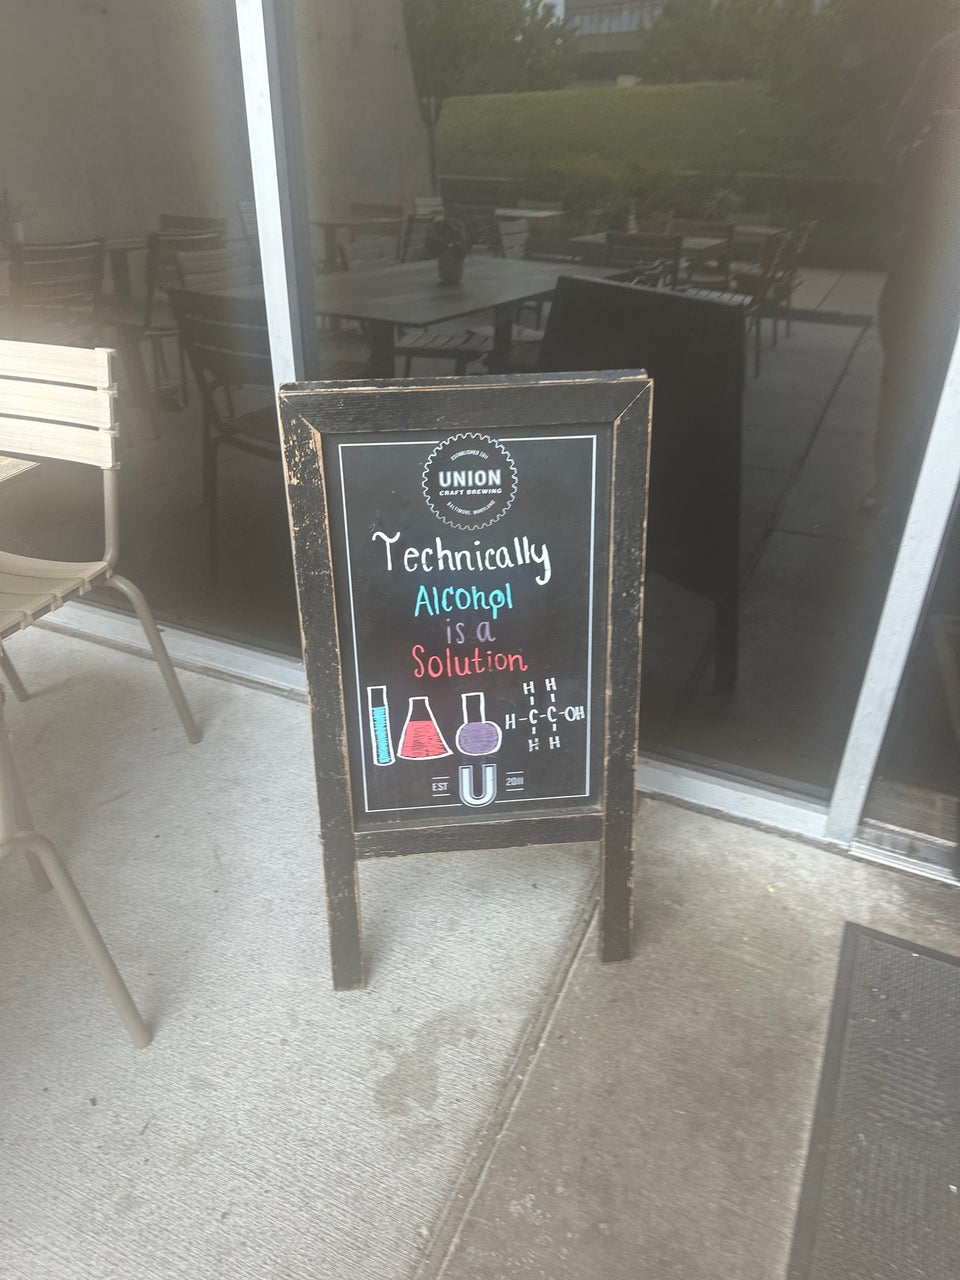 ESTABLISHED 2011
UNION
CRAFT BREWING
BALTIMORE, MARYLAND
Technically
Alcohol
is a
Solution
H H
H-C-C-OH
H H
EST U 2011